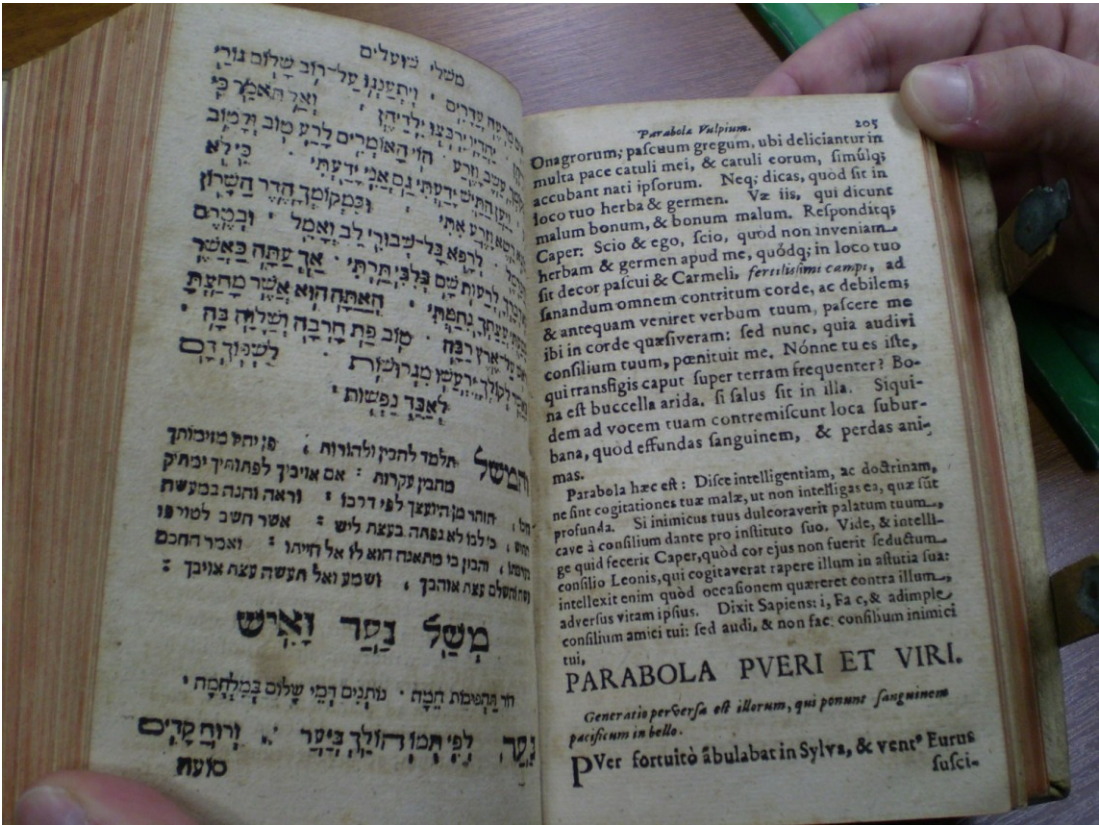 משלי שועלים
עֲדָרִים · וְיִתְעַנְּגוּ עַל־רֹוב שָׁלוֹם גּוּרַי
יַחְדָּיו יִרְבְּצוּ יַלְדֵיהֶן · וְאַל תֹּאמַר כִּי
עֵשֶׂב וָזֶרַע · הוֹי הָאוֹמְרִים לָרַע טוֹב וְלַטּוֹב
וַיַּעַן הַתַּיִשׁ יָדַעְתִּי גַם אֲנִי יָדַעְתִּי · כִּי לֹא
וָזֶרַע אִתִּי · וּבִמְקוֹמְךָ הֲדַר הַשָּׁרוֹן
לִרְפֹּא כָּל־שְׁבוּרֵי לֵב וְאֻמְלָל · וּבְטֶרֶם
לִרְעוֹת שָׁם בְּלִבִּי תַּרְתִּי · אַךְ עַתָּה כַּאֲשֶׁר
עֲצָתְךָ נִחַמְתִּי · הַאַתָּה הוּא אֲשֶׁר מָחַצְתָּ
עַל־אֶרֶץ רַבָּה · טוֹב פַּת חֲרֵבָה וְשַׁלְוָה בָהּ ·
לְקוֹלְךָ יִרְעֲשׁוּ מִגְרוֹשׁוֹת · לִשְׁפּוֹךְ דָּם
לְאַבֵּד נְפָשׁוֹת ·
והמשל תלמד להבין ולהורות · פן יהיו מזימותך
מהבין עקרות : אם אויביך לפתותיך ימתיק
הזהר מן היועצך לפי דרכו : וראה והנה במעשה
כי לבו לא נפתה בעצת ליש : אשר חשב לטורפו
והבין כי מתאנה הוא לו אל חייתו : ואמר החכם
והשלם עצת אוהבך , ושמע ואל תעשה עצת אויבך :
מְשַׁל נַעַר וָאִישׁ
דור תַּהְפּוּכוֹת הֵמָּה · נוֹתְנִים דְּמֵי שָׁלוֹם בְּמִלְחָמָה ·
נַעַר לְפִי תֻמּוֹ הוֹלֵךְ בַּיַּעַר · וְרוּחַ קָדִים
סועה
Parabola Vulpium. 205
Onagrorum; paſcuum gregum, ubi deliciantur in
multa pace catuli mei, & catuli eorum, ſimulq;
accubant nati ipſorum. Neq; dicas, quòd ſit in
loco tuo herba & germen. Væ iis, qui dicunt
malum bonum, & bonum malum. Reſponditq;
Caper: Scio & ego, ſcio, quòd non inveniam
herbam & germen apud me, quódq; in loco tuo
ſit decor paſcui & Carmeli, fertiliſſimi campi, ad
ſanandum omnem contritum corde, ac debilem;
& antequam veniret verbum tuum, paſcere me
ibi in corde quæſiveram: ſed nunc, quia audivi
conſilium tuum, pœnituit me. Nónne tu es iſte,
qui transfigis caput ſuper terram frequenter? Bo-
na eſt buccella arida. ſi ſalus ſit in illa. Siqui-
dem ad vocem tuam contremiſcunt loca ſubur-
bana, quòd effundas ſanguinem, & perdas ani-
mas.
Parabola hæc eſt: Diſce intelligentiam, ac doctrinam,
ne ſint cogitationes tuæ malæ, ut non intelligas ea, quæ ſūt
profunda. Si inimicus tuus dulcoraverit palatum tuum,
cave à conſilium dante pro inſtituto ſuo. Vide, & intelli-
ge quid fecerit Caper, quòd cor ejus non fuerit ſeductum
conſilio Leonis, qui cogitaverat rapere illum in aſtutia ſua:
intellexit enim quòd occaſionem quæreret contra illum,
adverſus vitam ipſius. Dixit Sapiens: i, Fa c, & adimple
conſilium amici tui: ſed audi, & non fac conſilium inimici
tui,
PARABOLA PVERI ET VIRI.
Generatio perverſa eſt illorum, qui ponunt ſanguinem
pacificum in bello.
PVer fortuitò ābulabat in Sylva, & ventꝰ Eurus
ſuſci-